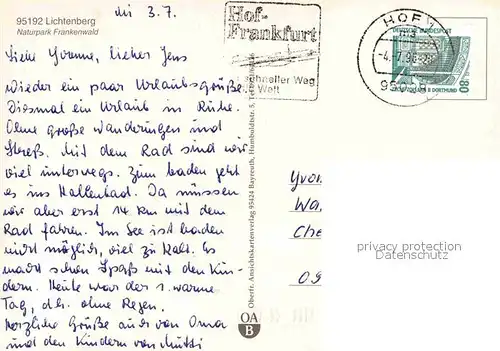 95192 Lichtenberg
Naturpark Frankenwald
3.7.
Liebe Yvonne, lieber Jens
wieder ein paar Urlaubsgrüße.
Diesmal ein Urlaub in Ruhe.
Ohne große Wanderungen und
Streß. Mit dem Rad sind wir
viel unterwegs. Zum baden geht
es ins Hallenbad. Da müssen
wir aber erst 14 km mit dem
Rad fahren. Im See ist baden
nicht möglich, viel zu kalt. Es
macht schon Spaß mit den Kin-
dern. Heute war der 1. warme
Tag, d.h. ohne Regen.
Herzliche Grüße auch von Oma
und den Kindern von Mutti
Hof-
Frankfurt
schneller Weg
Welt
HOF
DEUTSCHE BUNDESPOST
80
Oberfr. Ansichtskartenverlag 95424 Bayreuth, Humboldtstr. 5,
OA
B
Yvon
Wa
Che
09
privacy protection
Datenschutz